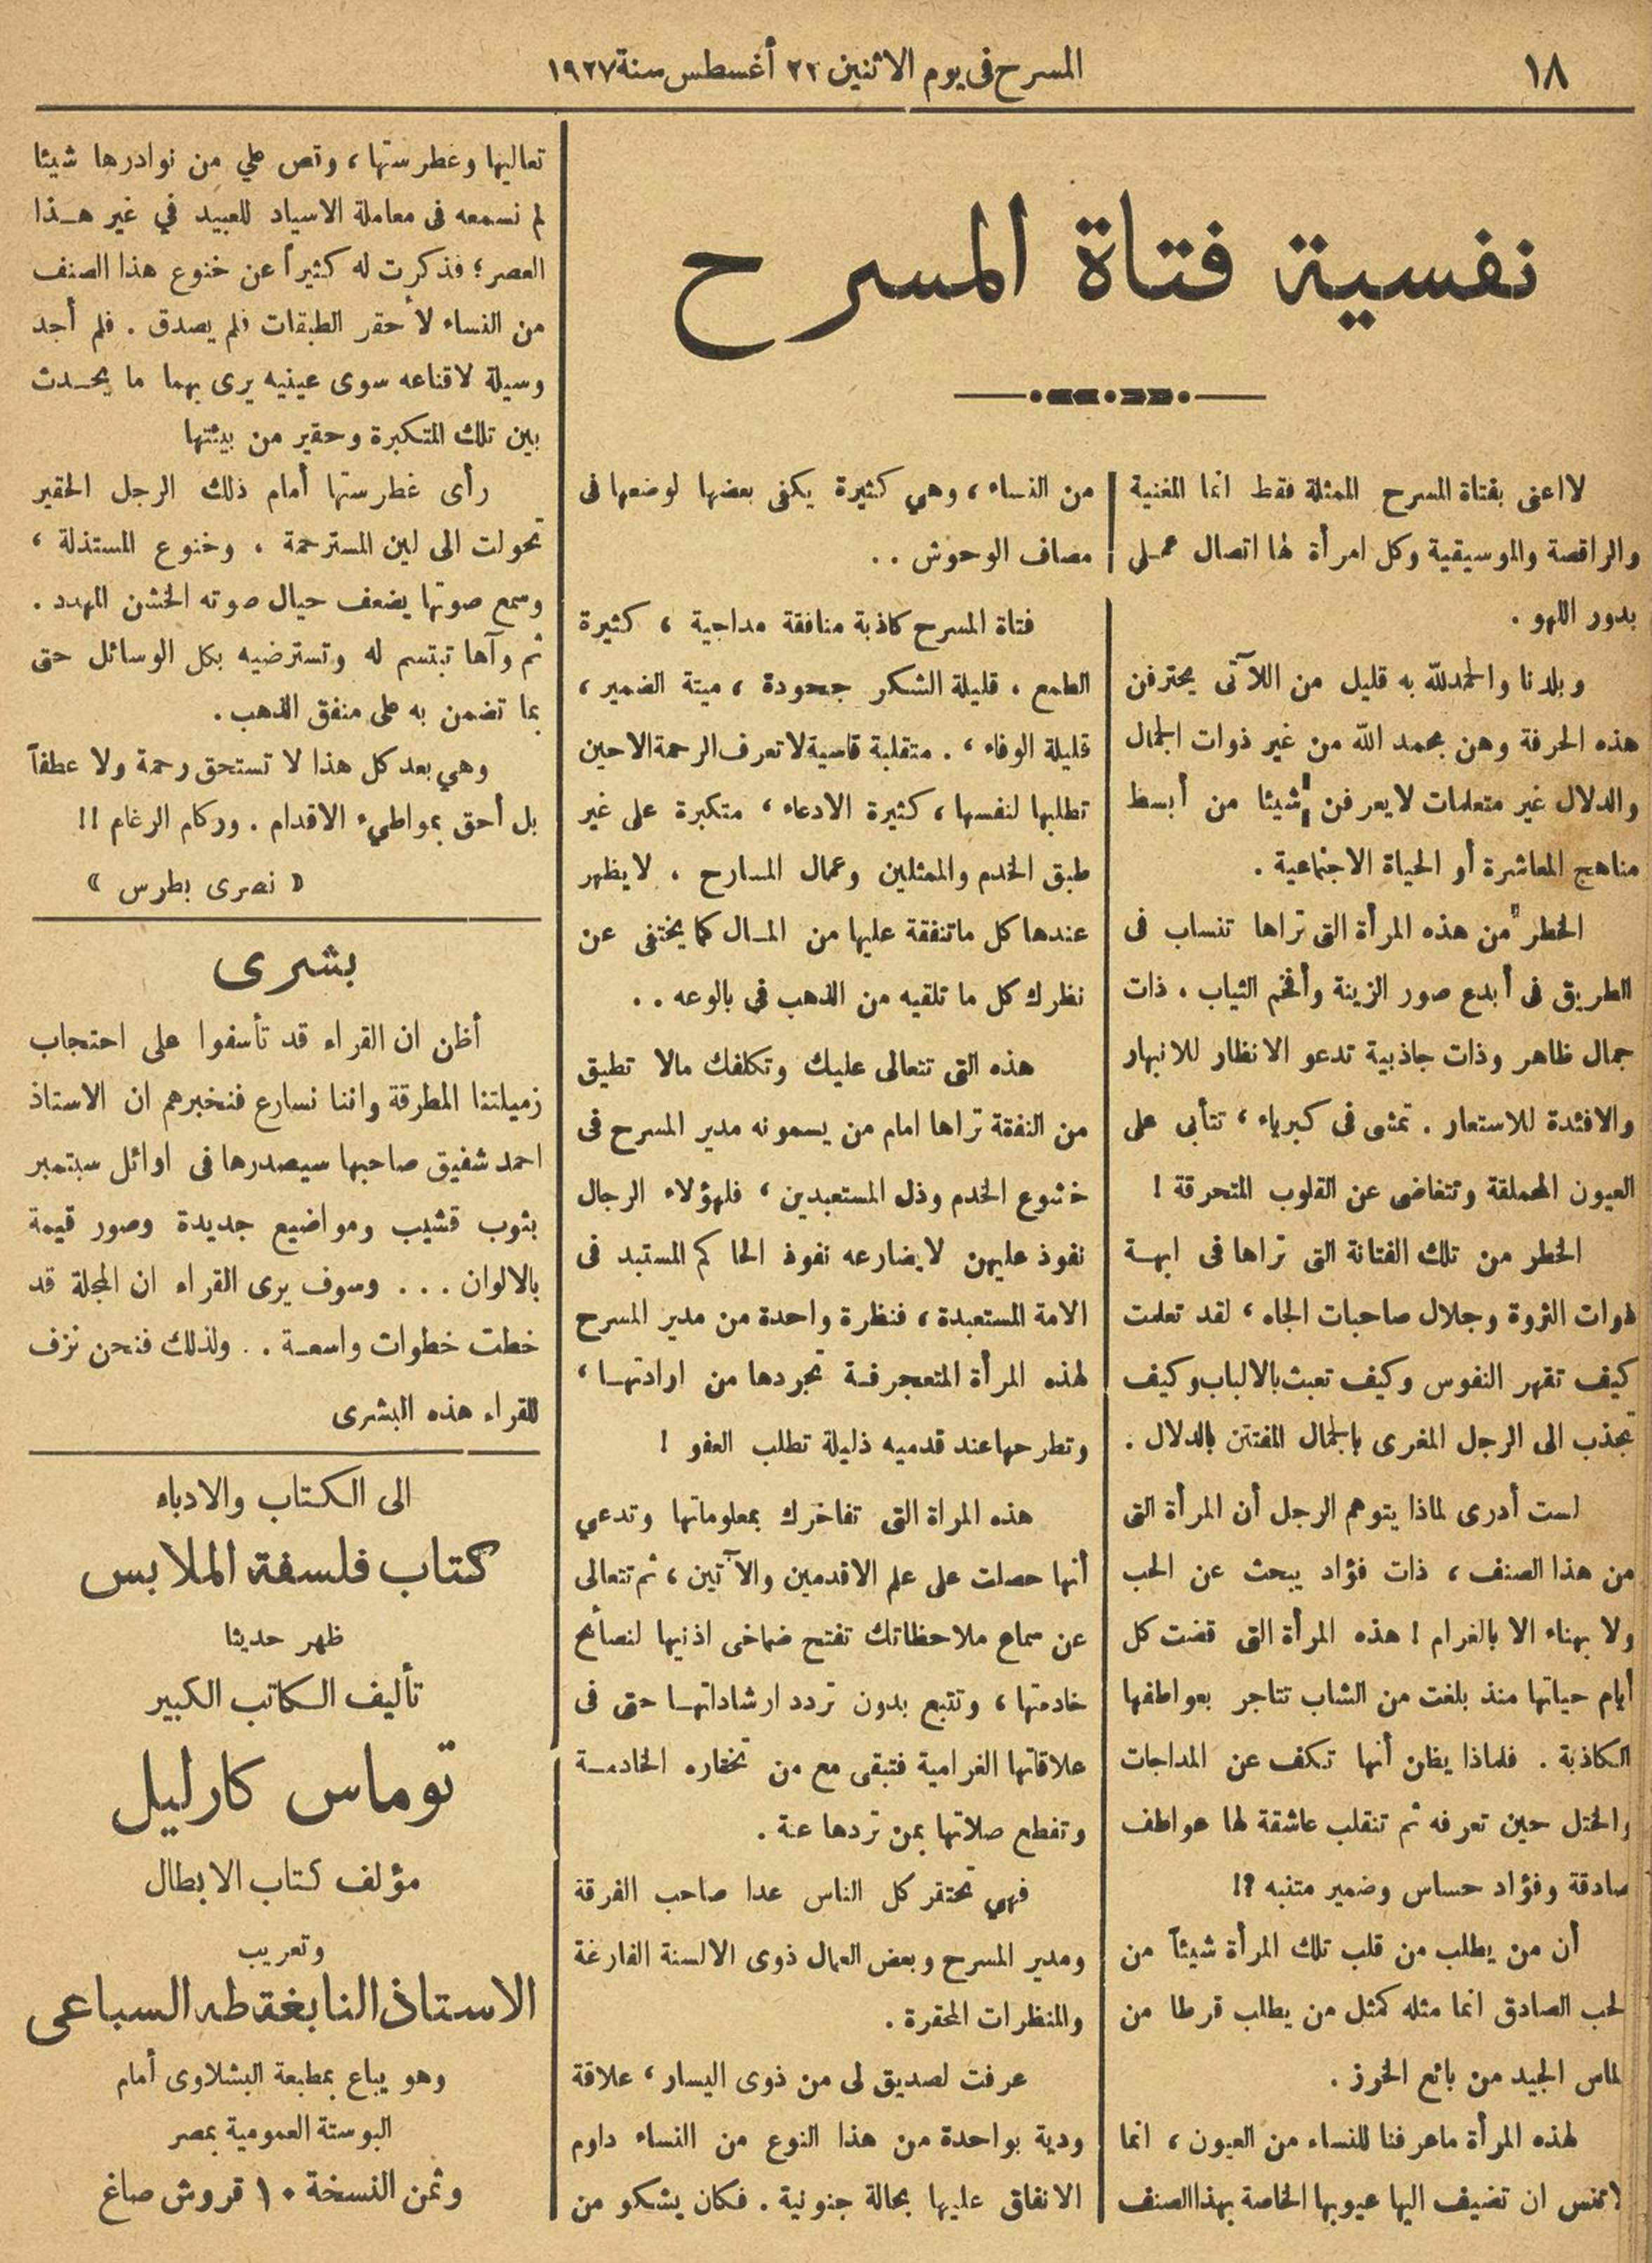 ١٨
المسرح فى يوم الاثنين ٢٢ أغسطس سنة ١٩٢٧
نفسية فتاة المسرح
لا اعنى بفتاة المسرح الممثلة فقط انما المغنية
والراقصة والموسيقية وكل امرأة لها اتصال عملي
بدور اللهو .
وبلدنا والحمد لله به قليل من اللآتى يحترفن
هذه الحرفة وهن بحمد الله من غير ذوات الجمال
والدلال غير متعلمات لا يعرفن شيئا من أبسط
مناهج المعاشرة أو الحياة الاجتماعية .
الخطر من هذه المرأة التى تراها تنساب فى
الطريق فى أبدع صور الزينة وأفخم الثياب ، ذات
جمال ظاهر وذات جاذبية تدعو الانظار للانبهار
والافئدة للاستعار . تمشى فى كبرياء ، تتأبى على
العيون المحملقة وتتغاضى عن القلوب المتحرقة !
الخطر من تلك الفتانة التى تراها فى ابهة
ذوات الثروة وجلال صاحبات الجاه ، لقد تعلمت
كيف تقهر النفوس وكيف تعبث بالالباب وكيف
تجذب الى الرجل المغرى بالجمال المفتتن بالدلال .
لست أدرى لماذا يتوهم الرجل أن المرأة التى
من هذا الصنف ، ذات فؤاد يبحث عن الحب
ولا يهناء الا بالغرام ! هذه المرأة التى قضت كل
أيام حياتها منذ بلغت من الشاب تتاجر بعواطفها
الكاذبة . فلماذا يظن أنها تكف عن المداجات
والختل حين تعرفه ثم تنقلب عاشقة لها عواطف
صادقة وفؤاد حساس وضمير متنبه ؟!
أن من يطلب من قلب تلك المرأة شيئاً من
لحب الصادق انما مثله كمثل من يطلب قرطا من
لماس الجيد من بائع الخرز .
لهذه المرأة ماعرفنا للنساء من العيون ، انما
لاتنس ان تضيف اليها عيوبها الخاصة بهذا الصنف
من النساء ، وهي كثيرة يكفى بعضها لوضعها فى
مصاف الوحوش . .
فتاة المسرح كاذبة منافقة مداجية ، كثيرة
الطمع ، قليلة الشكر جحودة ، ميتة الضمير ،
قليلة الوفاء ، . متقلبة قاسية لا تعرف الرحمة الاحين
تطلبها لنفسها ، كثيرة الادعاء ، متكبرة على غير
طبق الخدم والممثلين وعمال المسارح ، لا يظهر
عندها كل ماتنفقة عليها من المال كما يختفى عن
نظرك كل ما تلقيه من الذهب فى بالوعه . .
هذه التى تتعالى عليك وتكلفك مالا تطيق
من النفقة تراها امام من يسمونه مدير المسرح فى
خشوع الخدم وذل المستعبدين ، فلهؤلاء الرجال
نفوذ عليهن لا يضارعه نفوذ الحاكم المستبد فى
الامة المستعبدة ، فنظرة واحدة من مدير المسرح
لهذه المرأة المتعجرفة تجردها من ارادتها ،
وتطرحها عند قدميه ذليلة تطلب العفو !
هذه المراة التى تفاخرك بمعلوماتها وتدعي
أنها حصلت على علم الاقدمين والآتين ، ثم تتعالى
عن سماع ملاحظاتك تفتح ضماخى اذنيها لنصائح
خادمتها ، وتتبع بدون تردد ارشاداتها حتى فى
علاقاتها الغرامية فتبقى مع من تختاره الخادمة
وتفطع صلاتها بمن تردها عنة .
فهي تحتقر كل الناس عدا صاحب الفرقة
ومدير المسرح وبعض العمال ذوى الالسنة الفارغة
والمنظرات المحقرة .
عرفت لصديق لى من ذوى اليسار ، علاقة
ودية بواحدة من هذا النوع من النساء داوم
الانفاق عليها بحالة جنونية . فكان يشكو من
تعاليها وغطرستها ، وقص علي من نوادرها شيئا
لم نسمعه فى معاملة الاسياد للعبيد في غير هذا
العصر ؛ فذكرت له كثيراً عن خنوع هذا الصنف
من النساء لأحقر الطبقات فلم يصدق . فلم أجد
وسيلة لاقناعه سوى عينيه يرى بهما ما يحدث
بين تلك المتكبرة وحقير من بيئتها
رأى غطرستها أمام ذلك الرجل الحقير
تحولت الى لين المسترحمة ، وخنوع المستذلة ،
وسمع صوتها يضعف حيال صوته الخشن المهدد .
ثم رآها تبتسم له وتسترضيه بكل الوسائل حتى
بما تضمن به على منفق الذهب .
وهي بعد كل هذا لا تستحق رحمة ولا عطفاً
بل أحق بمواطيء الاقدام . وركام الرغام !!
« نصرى بطرس »
بشرى
أظن ان القراء قد تأسفوا على احتجاب
زميلتنا المطرقة واننا نسارع فنخبرهم ان الاستاذ
احمد شفيق صاحبها سيصدرها فى اوائل سبتمبر
بثوب قشيب ومواضيع جديدة وصور قيمة
بالالوان . . . وسوف يرى القراء ان المجلة قد
خطت خطوات واسعة . . ولذلك فنحن نزف
للقراء هذه البشرى
الى الكتاب والادباء
كتاب فلسفة الملابس
ظهر حديثا
تأليف الكاتب الكبير
توماس كارليل
مؤلف كتاب الابطال
وتعريب
الاستاذ النابغة طه السباعى
وهو يباع بمطبعة البشلاوى أمام
البوستة العمومية بمصر
وثمن النسخة ١٠ قروش صاغ